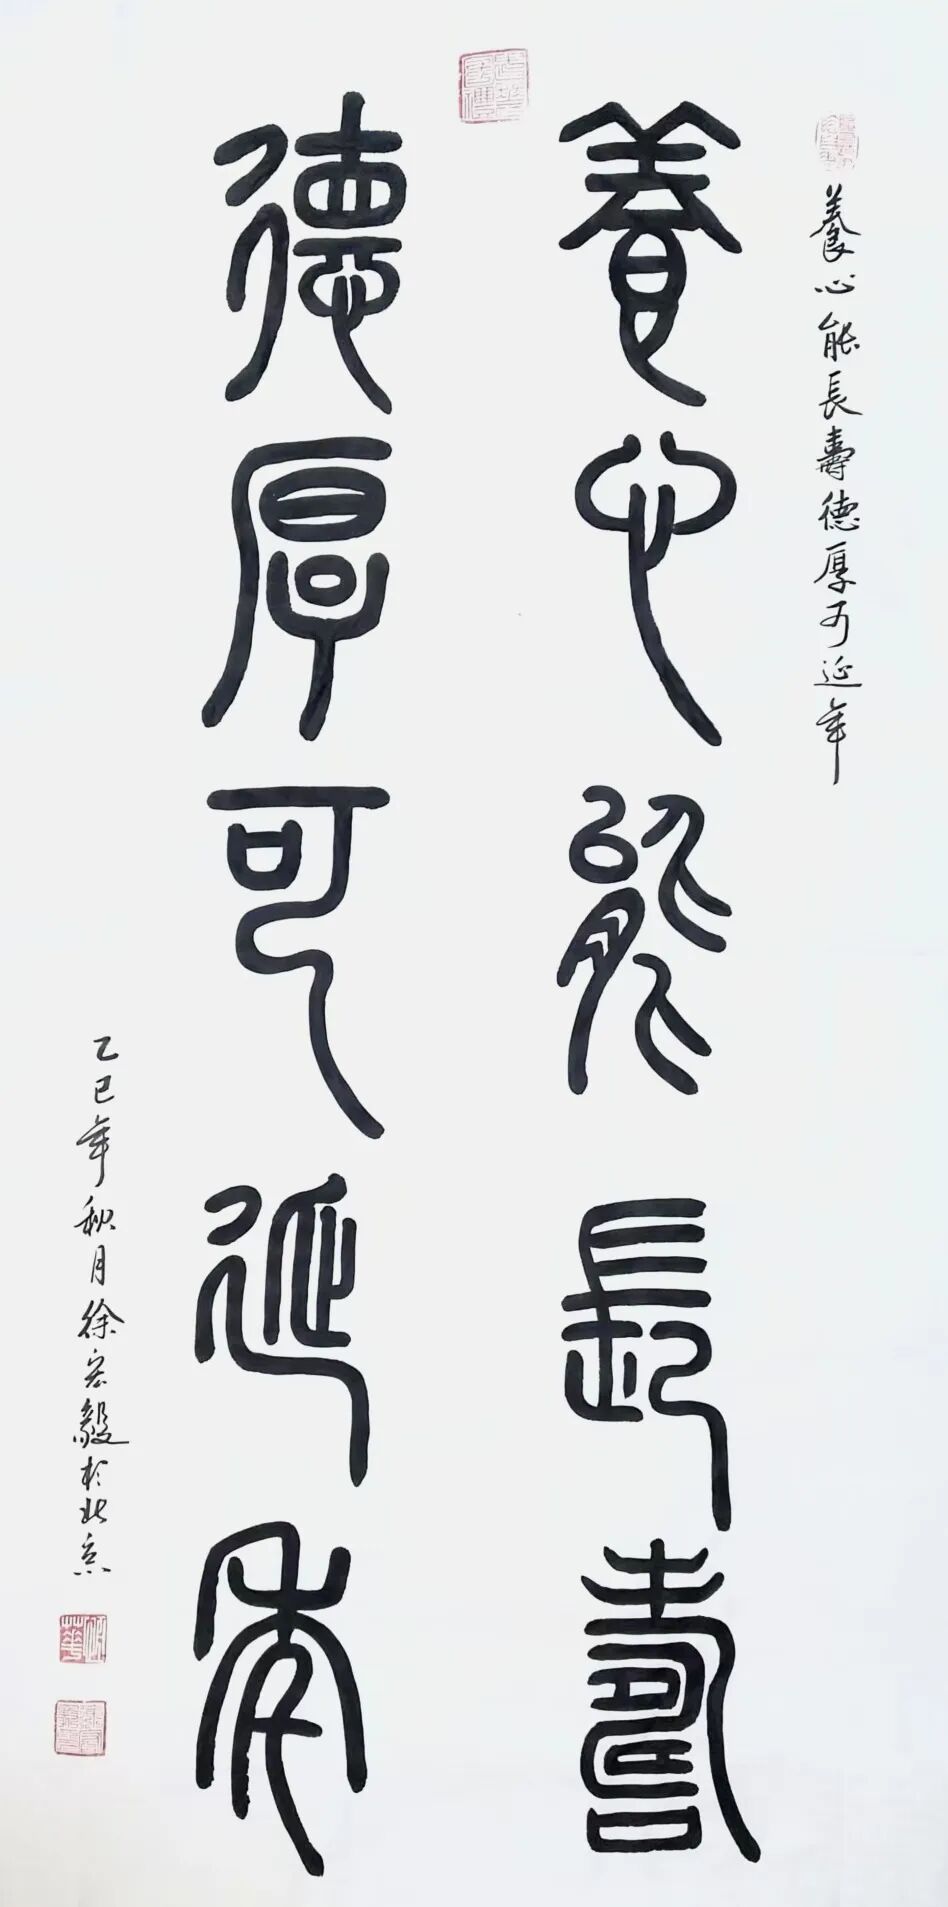 養心能長壽德厚可延年
養心能長壽
德厚可延年
乙巳年秋月徐宏毅於北京